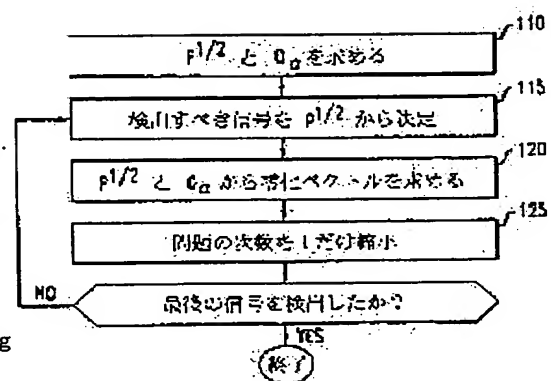 110
P1/2 と Qα を求める
115
検出すべき信号を P1/2 から決定
120
P1/2 と Qα から零化ベクトルを求める
125
問題の次数を1だけ縮小
最後の信号を検出したか?
NO
YES
終了
g